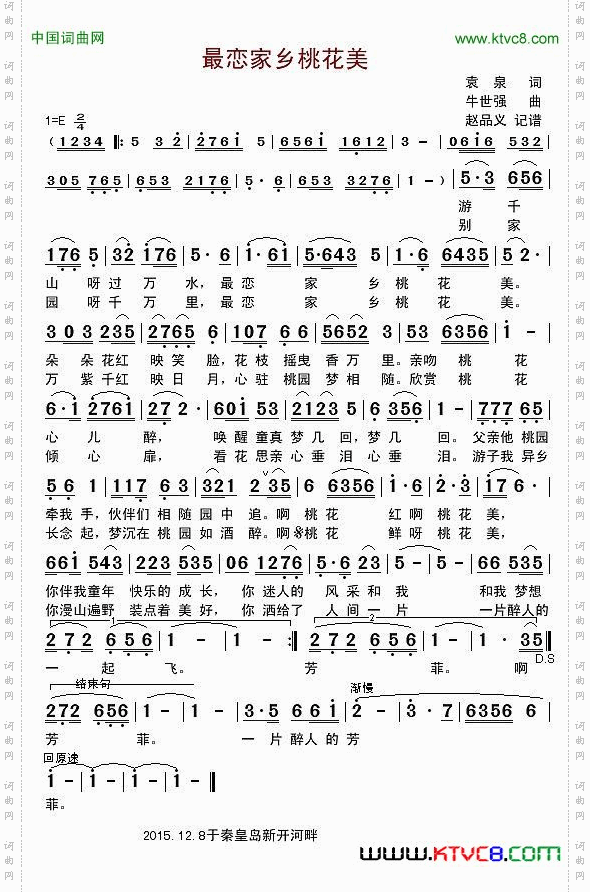 中国词曲网
www.ktvc8.com
最恋家乡桃花美
袁 泉 词
牛世强 曲
赵品义 记谱
1=E 2/4
（1234 ‖: 5 32 | 2761 5 | 6561 1612 | 3 - | 0616 532 |
305 765 | 653 2176 | 5·6 | 653 3276 | 1 - ）| 5·3 656 |
游 千
别 家
176 5 | 32 176 | 5·6 | 1·61 | 5·643 5 | 1·6 6435 | 5 2· |
山 呀过 万 水，最 恋 家 乡 桃 花 美。
园 呀千 万 里，最 恋 家 乡 桃 花 美。
303 235 | 2765 6 | 107 66 | 5652 3 | 53 6356 | 1 - |
朵 朵花红 映笑 脸，花枝 摇曳 香万 里。亲吻 桃 花
万 紫千红 映日 月，心驻 桃园 梦相 随。欣赏 桃 花
6·1 2761 | 27 2· | 601 53 | 2123 5 | 6 356 | 1 - | 777 65 |
心 儿 醉， 唤醒童真 梦几 回，梦几 回。父亲他 桃园
倾 心 扉， 看花思亲 心垂 泪心垂 泪。游子我 异乡
56 1 | 117 63 | 321 2 35 | 6 356 | 1·6 | 2·3 | 176 5 |
牵我 手，伙伴们 相随 园中 追。啊 桃花 红 啊 桃花 美，
长念 起，梦沉在 桃园 如酒 醉。啊 桃花 鲜 呀 桃花 美，
661 543 | 223 535 | 06 1276 | 5·6 23 | 5 - | 5 - | 66 535 |
你伴我童年 快乐的 成长， 你 迷人的 风采和 我 和我 梦想
你漫山遍野 装点着 美好， 你 洒给了 人间一 片 一片醉人的
1 2
272 656 | 1 - | 1 - :‖ 272 656 | 1 - | 1 35 ‖
D.S
一 起 飞。 芳 菲。 啊
结束句 渐慢
272 656 | 1 - | 1 - | 35 661 | 2 - | 3·7 | 6356 6 |
芳 菲。 一片 醉人 的 芳
回原速
1 - | 1 - | 1 - | 1 - ‖
菲。
2015.12.8于秦皇岛新开河畔
www.KTVC8.com